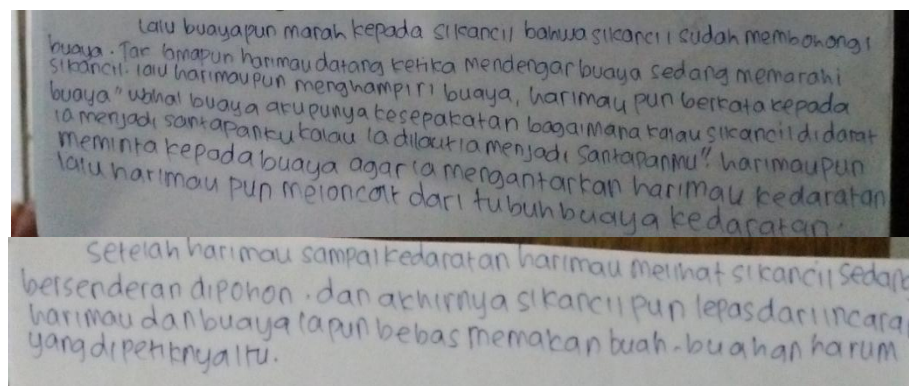 lalu buayapun marah kepada sikancil bahwa sikancil sudah membohongi
buaya. Tak lamapun harimau datang ketika mendengar buaya sedang memarahi
sikancil. lalu harimaupun menghampiri buaya, harimau pun berkata kepada
buaya "wahai buaya aku punya kesepakatan bagaimana kalau sikancil didarat
ia menjadi santapanku kalau ia dilaut ia menjadi santapanmu". harimaupun
meminta kepada buaya agar ia mengantarkan harimau kedaratan
lalu harimau pun meloncat dari tubuh buaya kedaratan.
setelah harimau sampai kedaratan harimau melihat sikancil sedang
bersenderan dipohon. dan akhirnya sikancil pun lepas dari incara
harimau dan buaya ia pun bebas memakan buah-buahan harum
yang dipetiknya itu.